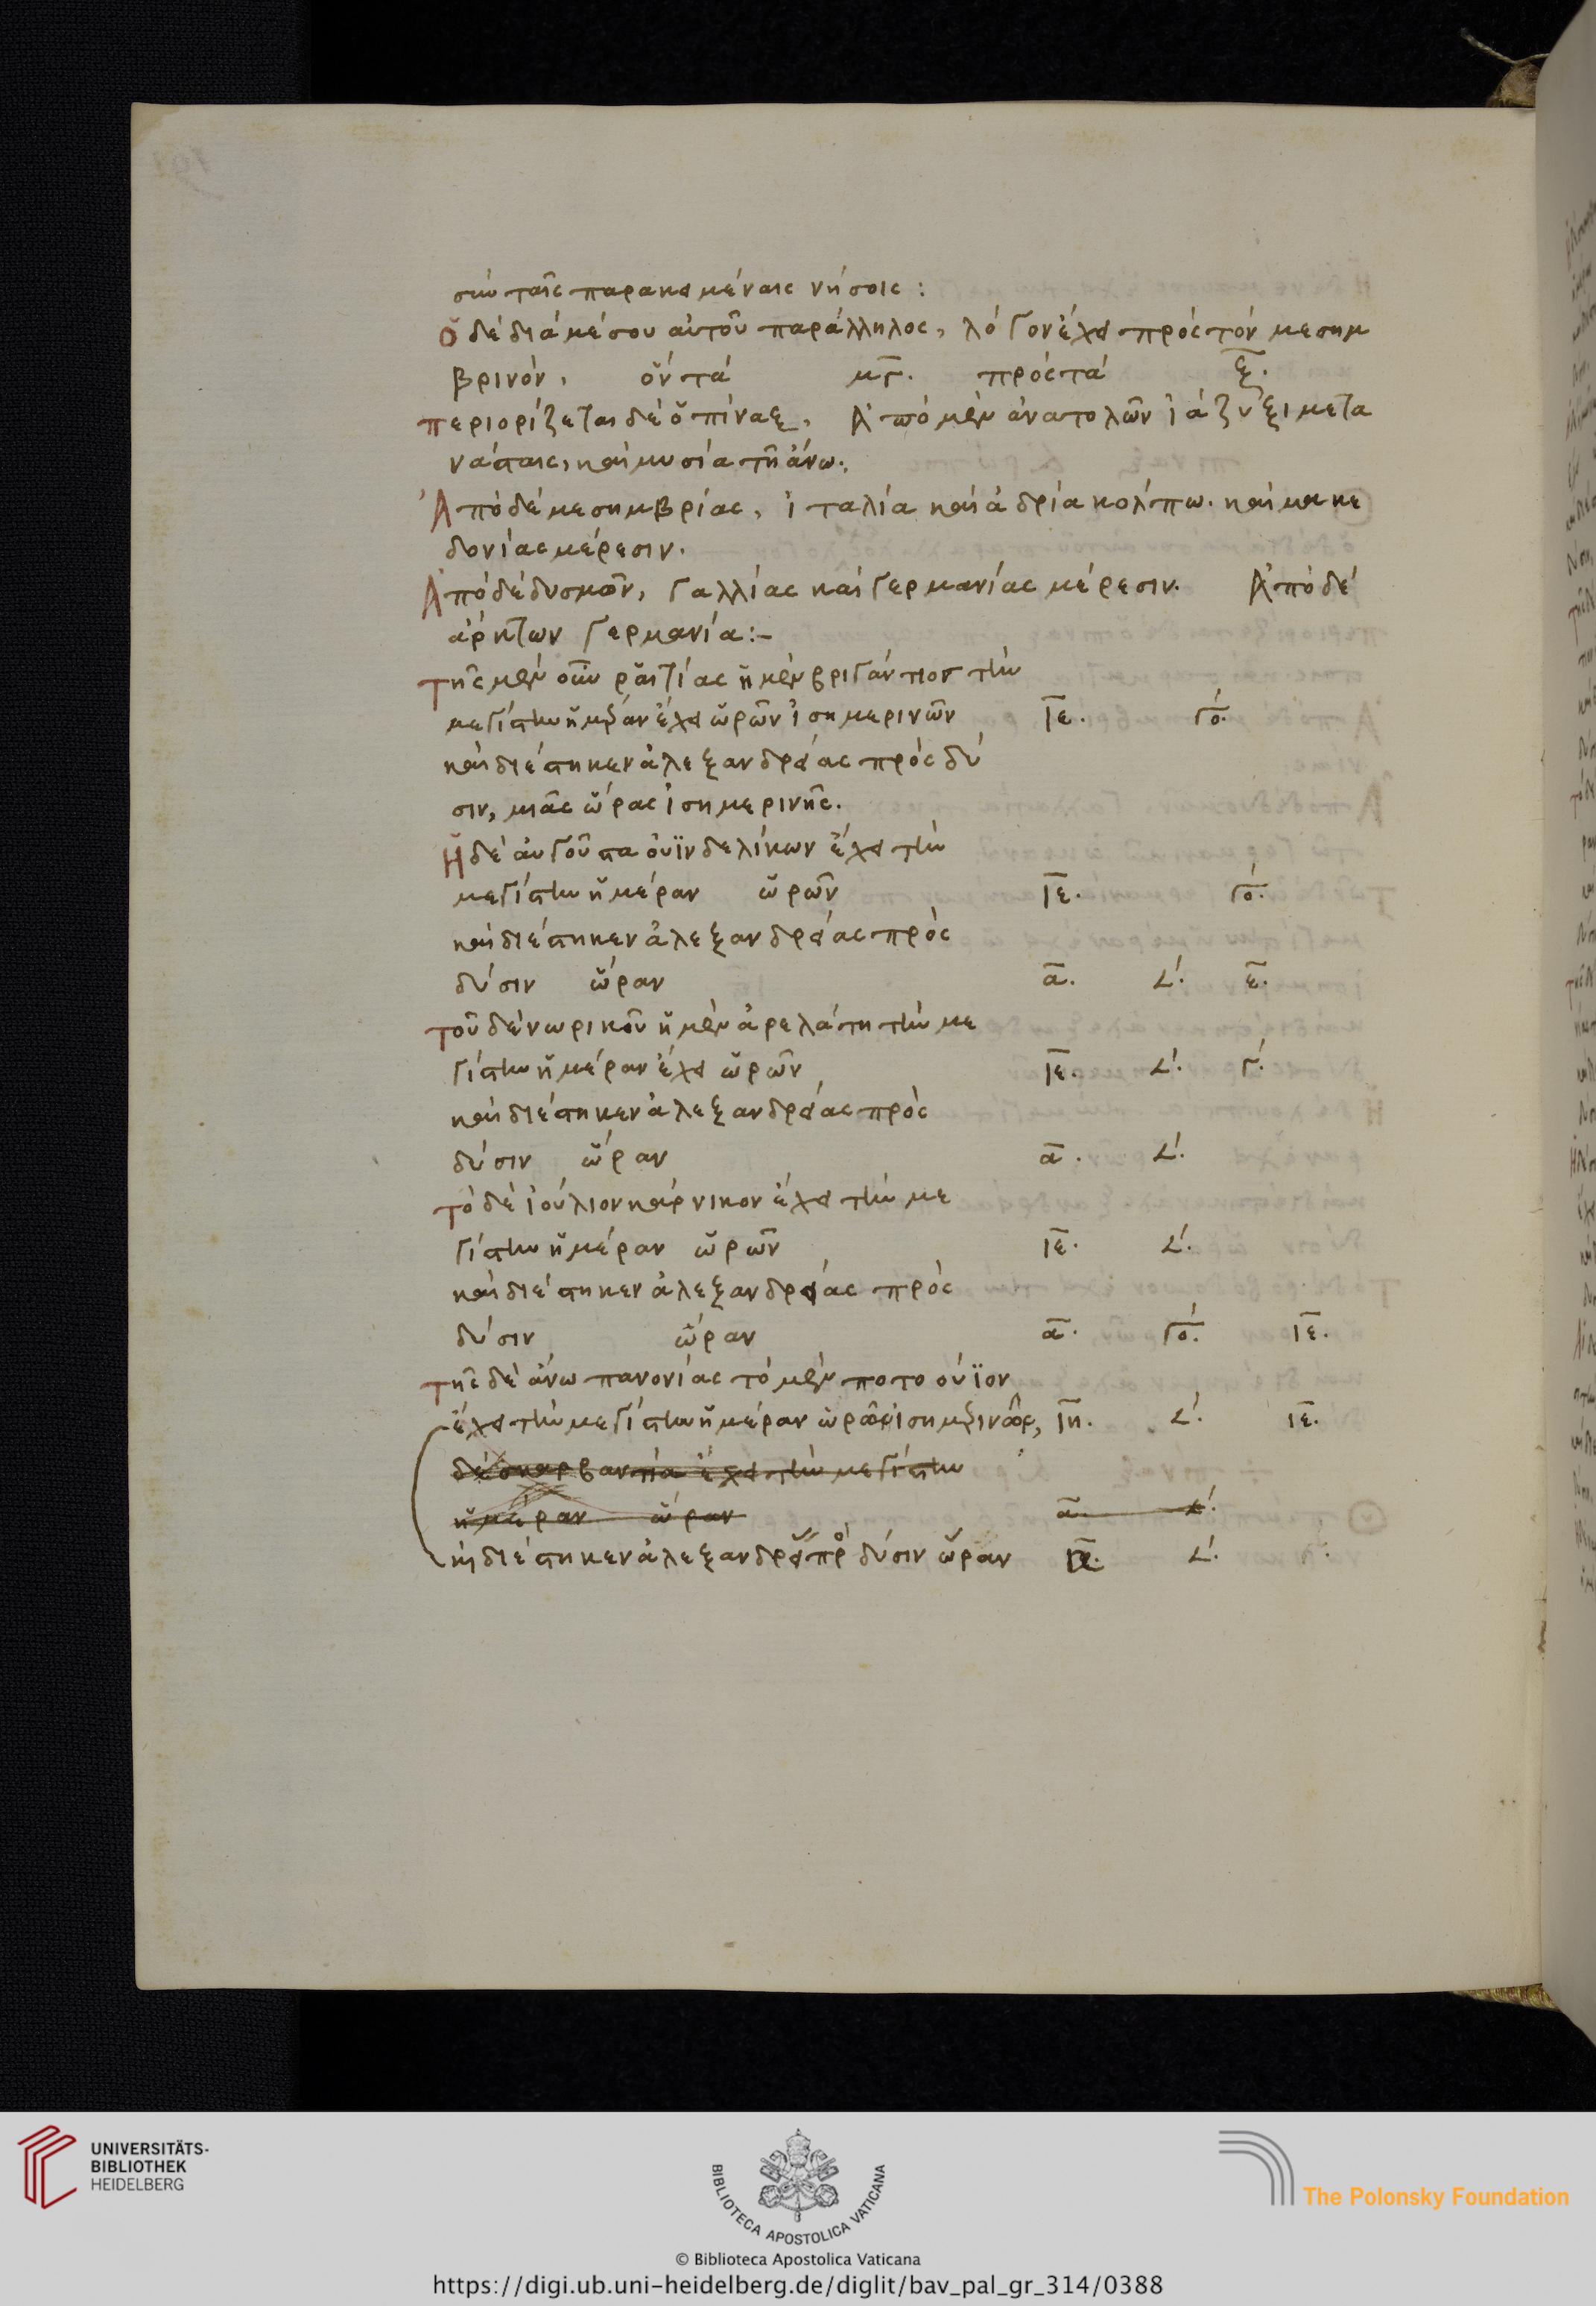 σὺν ταῖς παρακειμέναις νήσοις :
Ὁ δὲ διὰ μέσου αὐτοῦ παράλληλος, λόγον ἔχει πρὸς τὸν μεσημ
βρινὸν, ὃν τὰ μγ̅. πρὸς τὰ ξ̅.
περιορίζεται δὲ ὁ πίναξ, Ἀπὸ μὲν ἀνατολῶν ἰάζυξι μετα
νάσταις, καὶ μυσία τῆ ἄνω.
Ἀπὸ δὲ μεσημβρίας, ἰταλία καὶ ἀδρία κόλπω. καὶ μακε
δονίας μέρεσιν.
Ἀπὸ δὲ δυσμῶν, γαλλίας καὶ γερμανίας μέρεσιν. Ἀπὸ δὲ
ἄρκτων γερμανία :-
τῆς μὲν οὖν ῥαιτίας ἡ μὲν βριγάντιον τὴν
μεγίστην ἡμέραν ἔχει ὡρῶν ἰσημερινῶν ιε̅. γο̅.
καὶ διέστηκεν ἀλεξανδρείας πρὸς δύ
σιν, μιᾶς ὥρας ἰσημερινῆς.
Ἡ δὲ αὐγοῦστα οὐϊνδελίκων ἔχει τὴν
μεγίστην ἡμέραν ὡρῶν ιε̅. γο̅.
καὶ διέστηκεν ἀλεξανδρείας πρὸς
δύσιν ὥραν α̅. 𐅵. ε̅.
τοῦ δὲ νωρικοῦ ἡ μὲν ἀρελάτη τὴν με
γίστην ἡμέραν ἔχει ὡρῶν ιε̅. 𐅵. γ.
καὶ διέστηκεν ἀλεξανδρείας πρὸς
δύσιν ὥραν α̅. 𐅵.
τὸ δὲ ἰούλιον κάρνικον ἔχει τὴν με
γίστην ἡμέραν ὡρῶν ιε̅. 𐅵.
καὶ διέστηκεν ἀλεξανδρείας πρὸς
δύσιν ὥραν α̅. γο̅. ιε̅.
τῆς δὲ ἄνω πανονίας τὸ μὲν ποτοούϊον
ἔχει τὴν μεγίστην ἡμέραν ὡρῶν ἰσημερινῶν, ιη̅. 𐅵. ιε̅.
δὲ σκαρβαντία ἔχει τὴν μεγίστην
ἡμέραν ὥραν α̅. 𐅵.
καὶ διέστηκεν ἀλεξανδρείας πρὸς δύσιν ὥραν 𐅵.
UNIVERSITÄTS-
BIBLIOTHEK
HEIDELBERG
BIBLIOTECA APOSTOLICA VATICANA
The Polonsky Foundation
© Biblioteca Apostolica Vaticana
https://digi.ub.uni-heidelberg.de/diglit/bav_pal_gr_314/0388